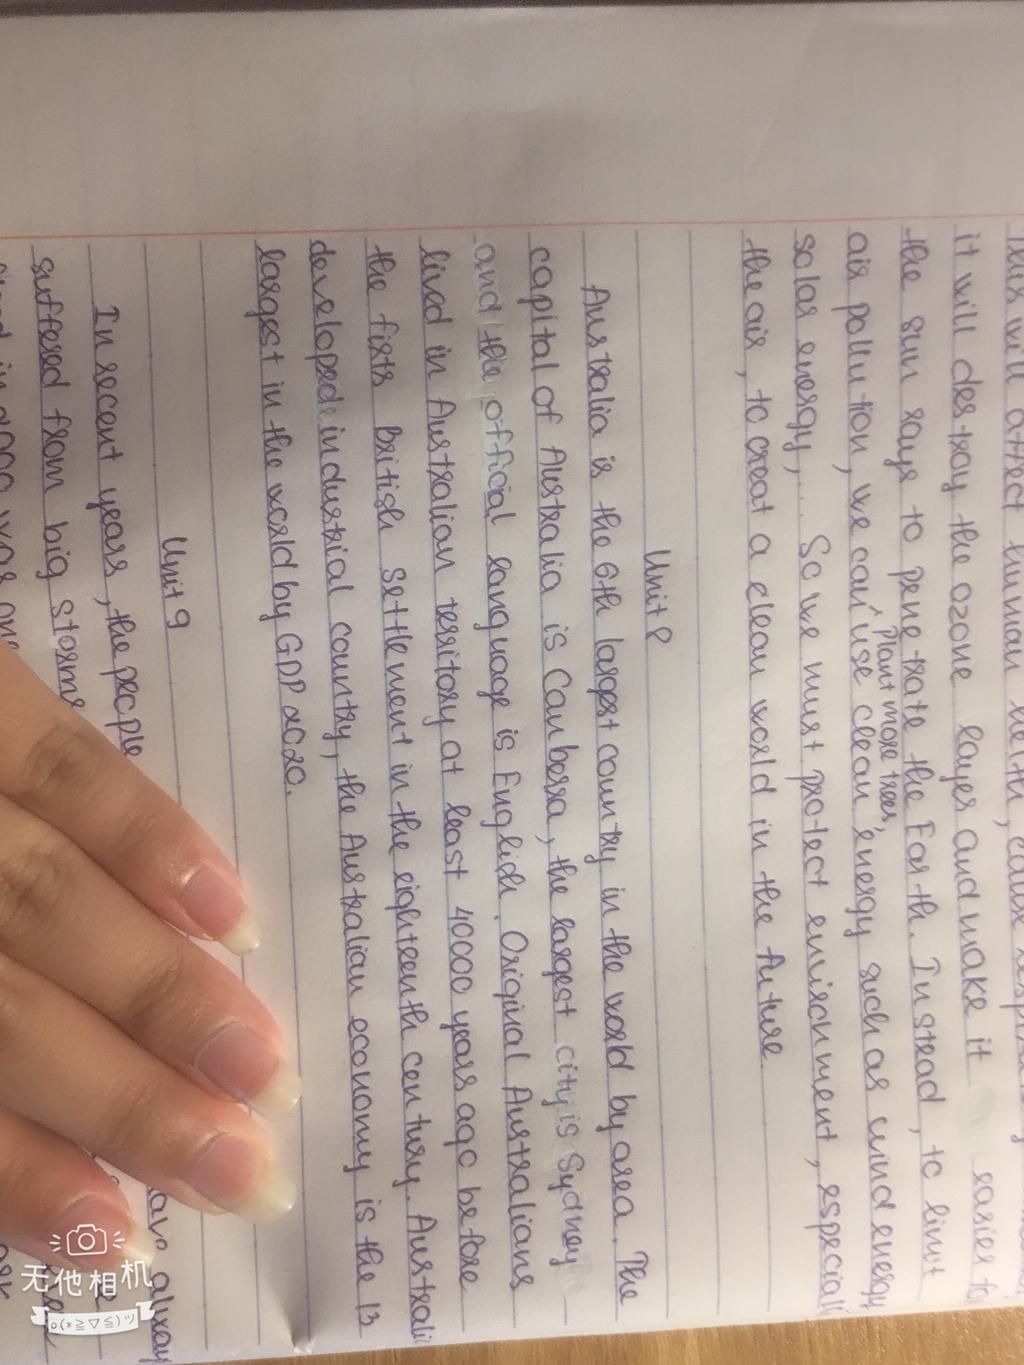 it will destray the ozone layer and make it easier to
the sun rays to penetrate the Earth. Instead, to limit
Plant more trees,
air pollution, we can use clean energy such as wind energy
solar energy,... So we must protect envirionment, especiall
the air, to creat a clean world in the future
Unit 8
Australia is the 6th largest country in the world by area. The
capital of Australia is Canberra, the largest city is Sydney
and the official language is English. Original Australians
lived in Australian territory at least 40000 years ago before
the firts British settlement in the eighteenth century. Australi
developed industrial country, the Australian economy is the 13
largest in the world by GDP 2020.
Unit 9
In recent years, the people
suffered from big storms
无他相机